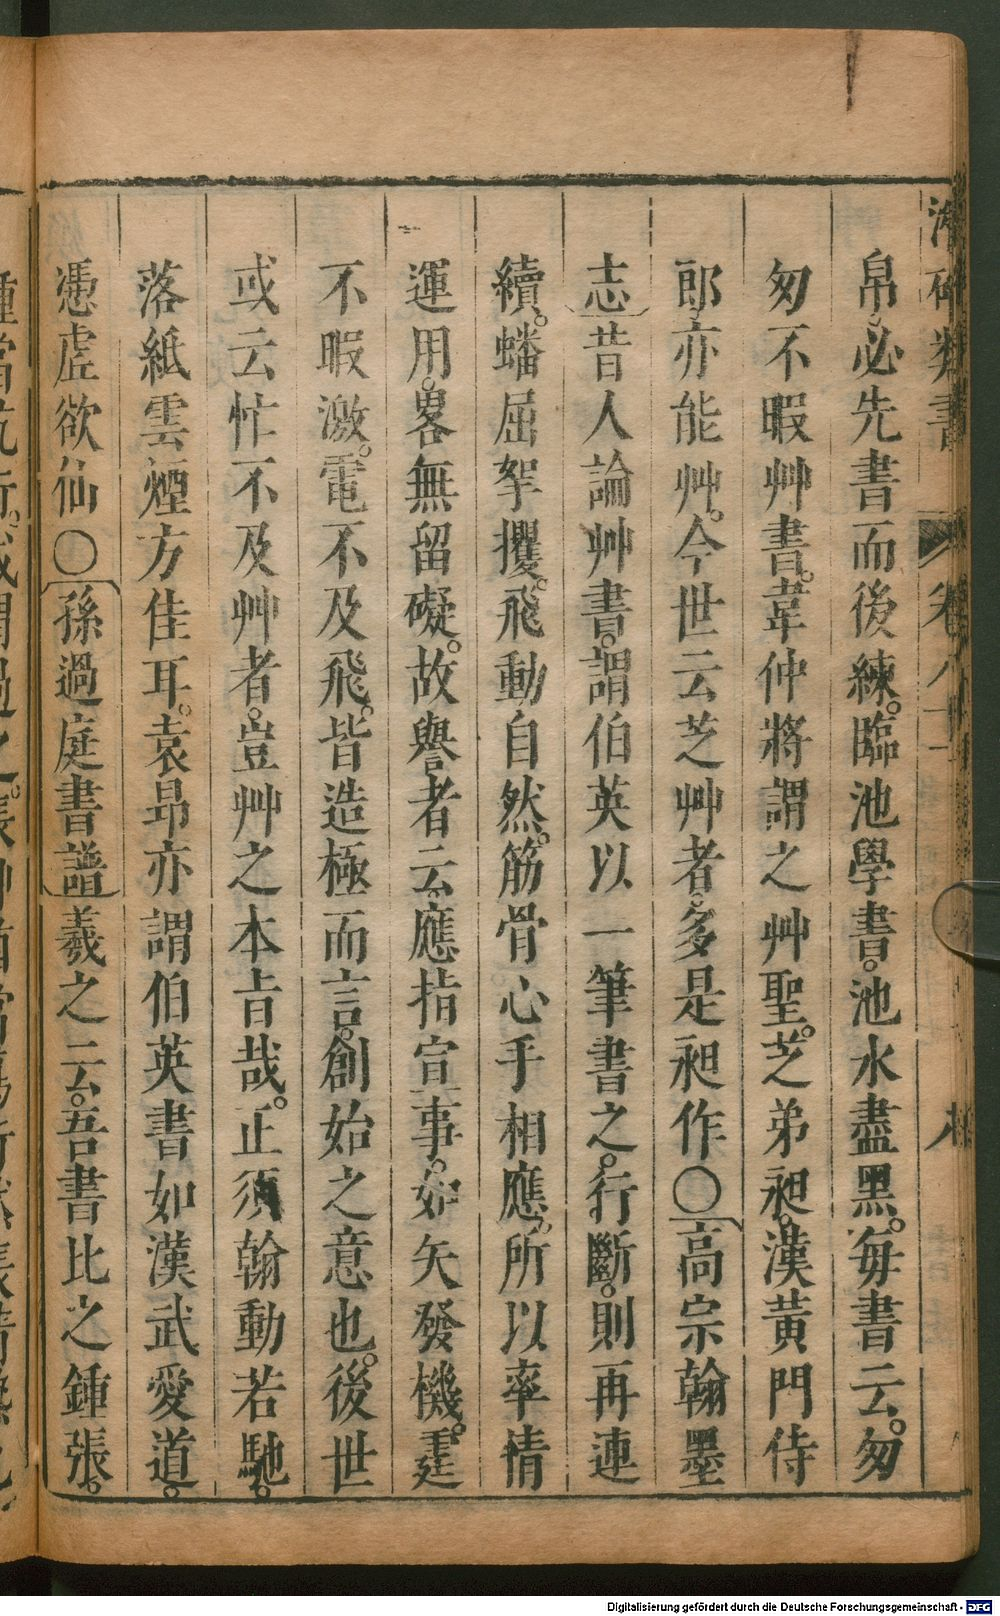 帛。必先書而後練。臨池學書。池水盡黑。每書云。匆
匆不暇艸書。韋仲將謂之艸聖。芝弟昶。漢黃門侍
郎。亦能艸。今世云芝艸者。多是昶作〇高宗翰墨
志昔人論艸書。謂伯英以一筆書之。行斷。則再連
續。蟠屈拏攫。飛動自然。筋骨心手相應。所以率情
運用。畧無留礙。故譽者云。應指宣事。如矢發機。霆
不暇激。電不及飛。皆造極而言。創始之意也。後世
或云忙不及艸者。豈艸之本㫖哉。正須翰動若馳。
落紙雲煙方佳耳。袁昂亦謂伯英書如漢武愛道。
憑虛欲仙〇孫過庭書譜羲之云。吾書比之鍾張。
Digitalisierung gefördert durch die Deutsche Forschungsgemeinschaft - DFG